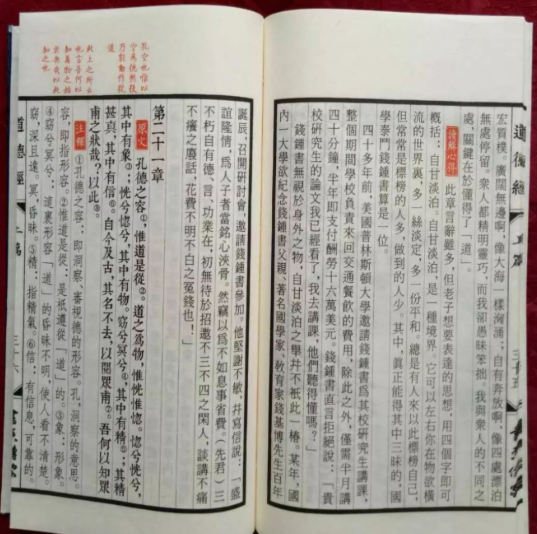 宏質樸，廣闊無邊啊，像大海一樣洶湧；自有奔放啊，像四處漂泊
無處停留。衆人都精明靈巧，而我卻愚昧笨拙。我與衆人的不同之
處，關鍵在於懂得了「道」。
讀解心得
此章言辭雖多，但老子想要表達的思想，用四個字即可
概括：自甘淡泊。自甘淡泊，是一種境界。它可以左右你在物欲橫
流的世界裏多一絲淡定，多一份平和。總是有人來以此標榜自己，
但常常是標榜的人多，做到的人少。其中，真正能得其中三昧的，國
學泰鬥錢鍾書算是一位。
四十多年前，美國普林斯頓大學邀請錢鍾書爲其校研究生講課，
整個期間學校負責來回交通餐飲的費用，除此之外，僅需半月講
四十分鐘，半年即支付酬勞十六萬美元。錢鍾書直言拒絕說：「貴
校研究生的論文我已經看了，我去講課，他們聽得懂嗎？」
錢鍾書無視於身外之物，自甘淡泊之舉并不祇此一樁。某年，國
内一大學欲紀念錢鍾書父親、著名國學家、教育家錢基博先生百年
道德經
上篇
三十五
誕辰，召開研討會，邀請錢鍾書參加。他堅謝不敏，并寫信說：「盛
誼隆情，爲人子者當銘心浹骨。然竊以爲不如息事省費。（先君）三
不朽自有德、言、功業在，初無待於招邀不三不四之閑人，談講不痛
不癢之廢話，花費不明不白之冤錢也！」
第二十一章
原文
孔德之容①，惟道是從②。道之爲物，惟恍惟惚。惚兮恍兮，
其中有象③；恍兮惚兮，其中有物。窈兮冥兮④，其中有精⑤；其精
甚真，其中有信⑥。自今及古，其名不去，以閱眾甫⑦。吾何以知眾
甫之狀哉？以此⑧。
注釋
①孔德之容：即洞察、審視德的形容。孔，洞察的意思。
容，即指形容。②惟道是從：是祇遵從「道」的。③象：形象。
④窈兮冥兮：道裏形容「道」的昏昧不明，使人看不清楚。
窈，深且遠。冥，昏昧。⑤精：指精氣。⑥信：有信息，可靠的。
道德經
上篇
三十六